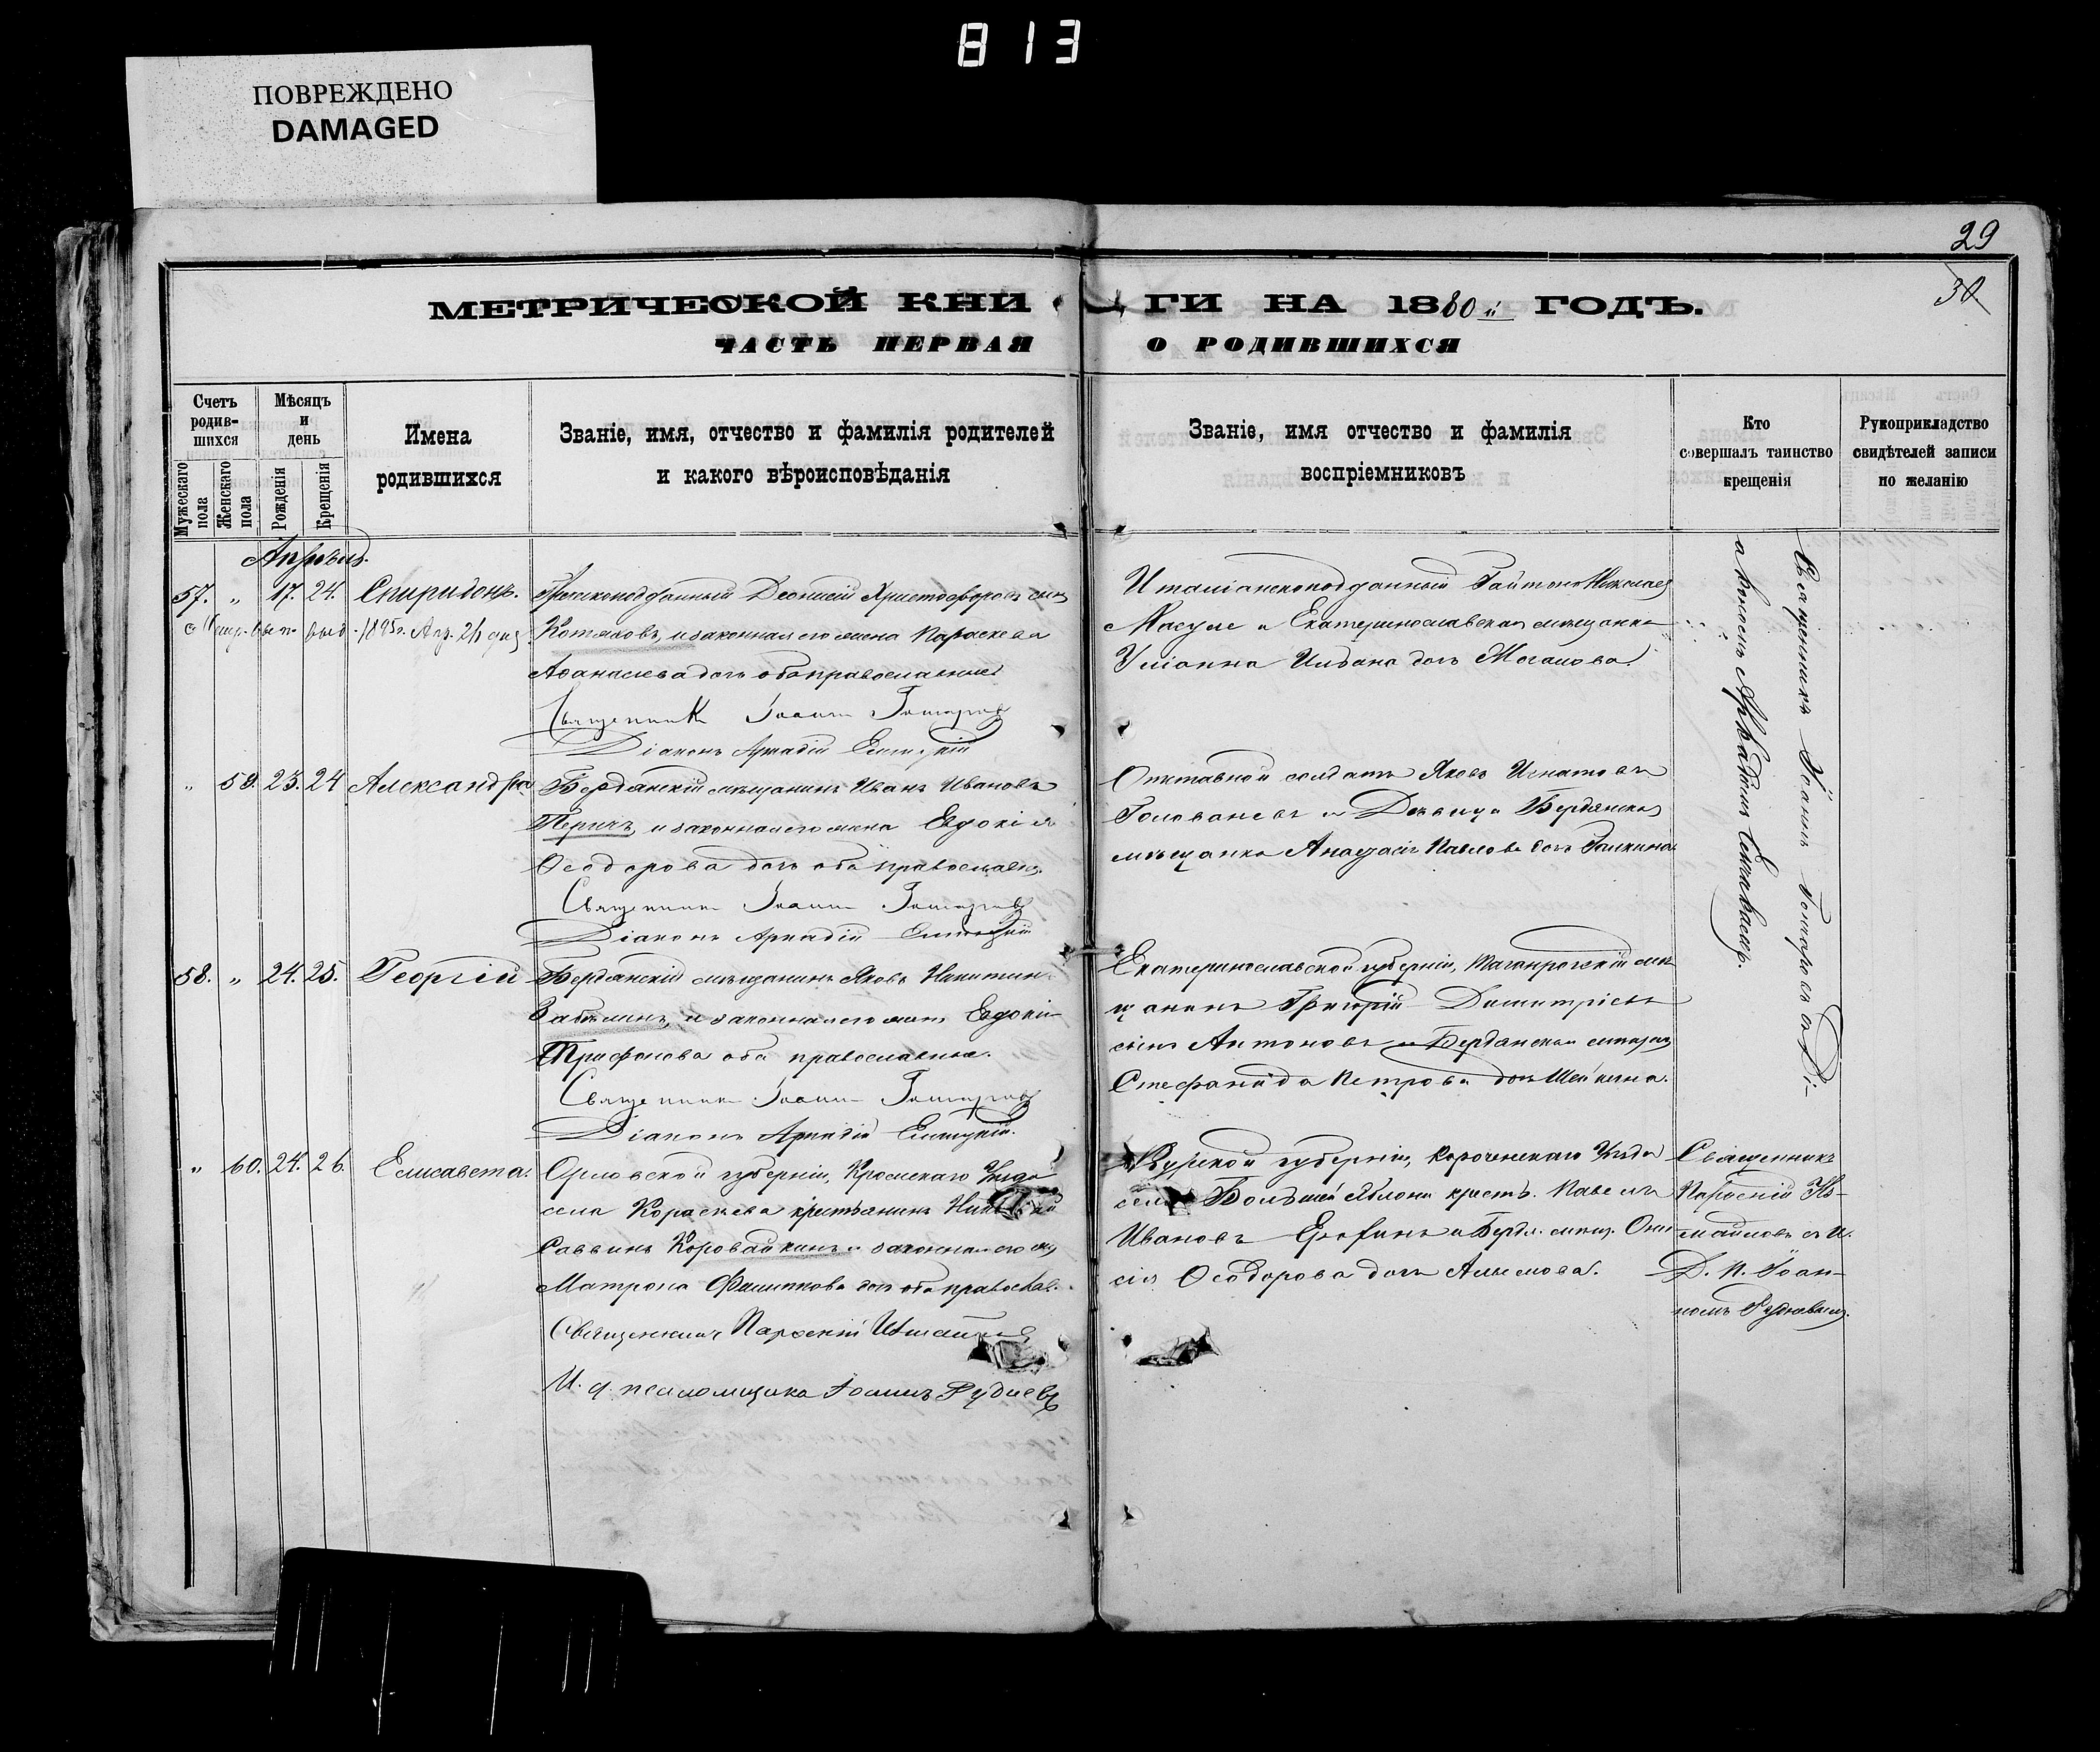 813
ПОВРЕЖДЕНО
DAMAGED
29
30
МЕТРИЧЕСКОЙ КНИГИ НА 1880й ГОДЪ.
ЧАСТЬ ПЕРВАЯ О РОДИВШИХСЯ
Счетъ родившихся
Мужескаго пола
Женскаго пола
Мѣсяцъ и день
Рожденія
Крещенія
Имена родившихся
Званіе, имя, отчество и фамилія родителей
и какого вѣроисповѣданія
Званіе, имя отчество и фамилія
воспріемниковъ
Кто
совершалъ таинство
крещенія
Рукоприкладство
свидѣтелей записи
по желанію
Апрѣль.
57. „ 17. 24. Спиридонъ.
1895г. Апр. 26 дня
Греческоподданный Діонисій Христофоровъ сынъ
Котяковъ, и законная его жена Параскева
Аѳанасіева дочь оба православные
Священникъ Іоаннъ
Діаконъ Аркадій
Италіанскоподданный Гайтано Николаев
Масуле и Екатеринославская мѣщанка
Уліанна Ильвана дочь
„ 58. 23. 24 Александра
Бердянскій мѣщанинъ Иванъ Ивановъ
Перичъ, и законная его жена Евдокія
Ѳеодорова дочь оба православн.
Священникъ Іоаннъ
Діаконъ Аркадій
Отставной солдатъ Яковъ Игнатовъ
Голованевъ и Дѣвица Бердянская
мѣщанка Анастасія Павлова дочь Галкина
58. „ 24. 25. Георгій
Бердянскій мѣщанинъ Яковъ Никитин
Забѣлинъ, и законная его жена Евдокія
Трифонова оба православные.
Священникъ Іоаннъ
Діаконъ Аркадій
Екатеринославской губерніи, Таганрогскій мѣ
щанинъ Григорій Димитріевъ
сынъ Антоновъ и Бердянская мѣщан.
Стефанида Петрова дочь Шейкина.
Священникъ Іоаннъ съ Ді-
акономъ Аркадіемъ
„ 60. 24. 26. Елисавета.
Орловской губерніи, Кромскаго Уѣзда
села Кораскева крестьянинъ
Саввинъ Коровайкинъ и законная его ж.
Матрона Филиппова дочь оба православ.
Священникъ Парѳеній Измайловъ
И. д. псаломщика Іоаннъ Рудневъ
Курской губерніи, Короченскаго Уѣзда
села Большей Яблони крест. Павелъ
Ивановъ и Бердян. мѣщ. Они
сія Ѳеодорова дочь
Священникъ
Парѳеній Из-
майловъ съ И.
Д. П. Іоан-
номъ Рудневым.